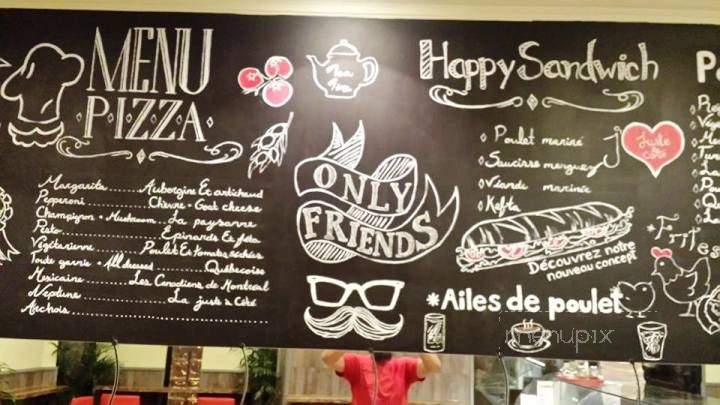 MENU
PIZZA
Margarita......Aubergine Et artichaud
Pepperoni......Chèvre - Goat cheese
Champignon - Mushroom - La paysanne
Pesto......Epinards Et feta
Végitarienne......Poulet Et tomates séchés
Toute garnie - All dressed......Québécoise
Mexicaine......Les Canadiens de Montréal
Neptune......La juste à Côté
Anchois
Tea
ONLY
FRIENDS
Happy Sandwich
Poulet mariné
Saucisse merguez
Viande marinée
Kefta
Juste
à
Côté
Découvrez notre
nouveau concept
*Ailes de poulet
*Frites
menupix